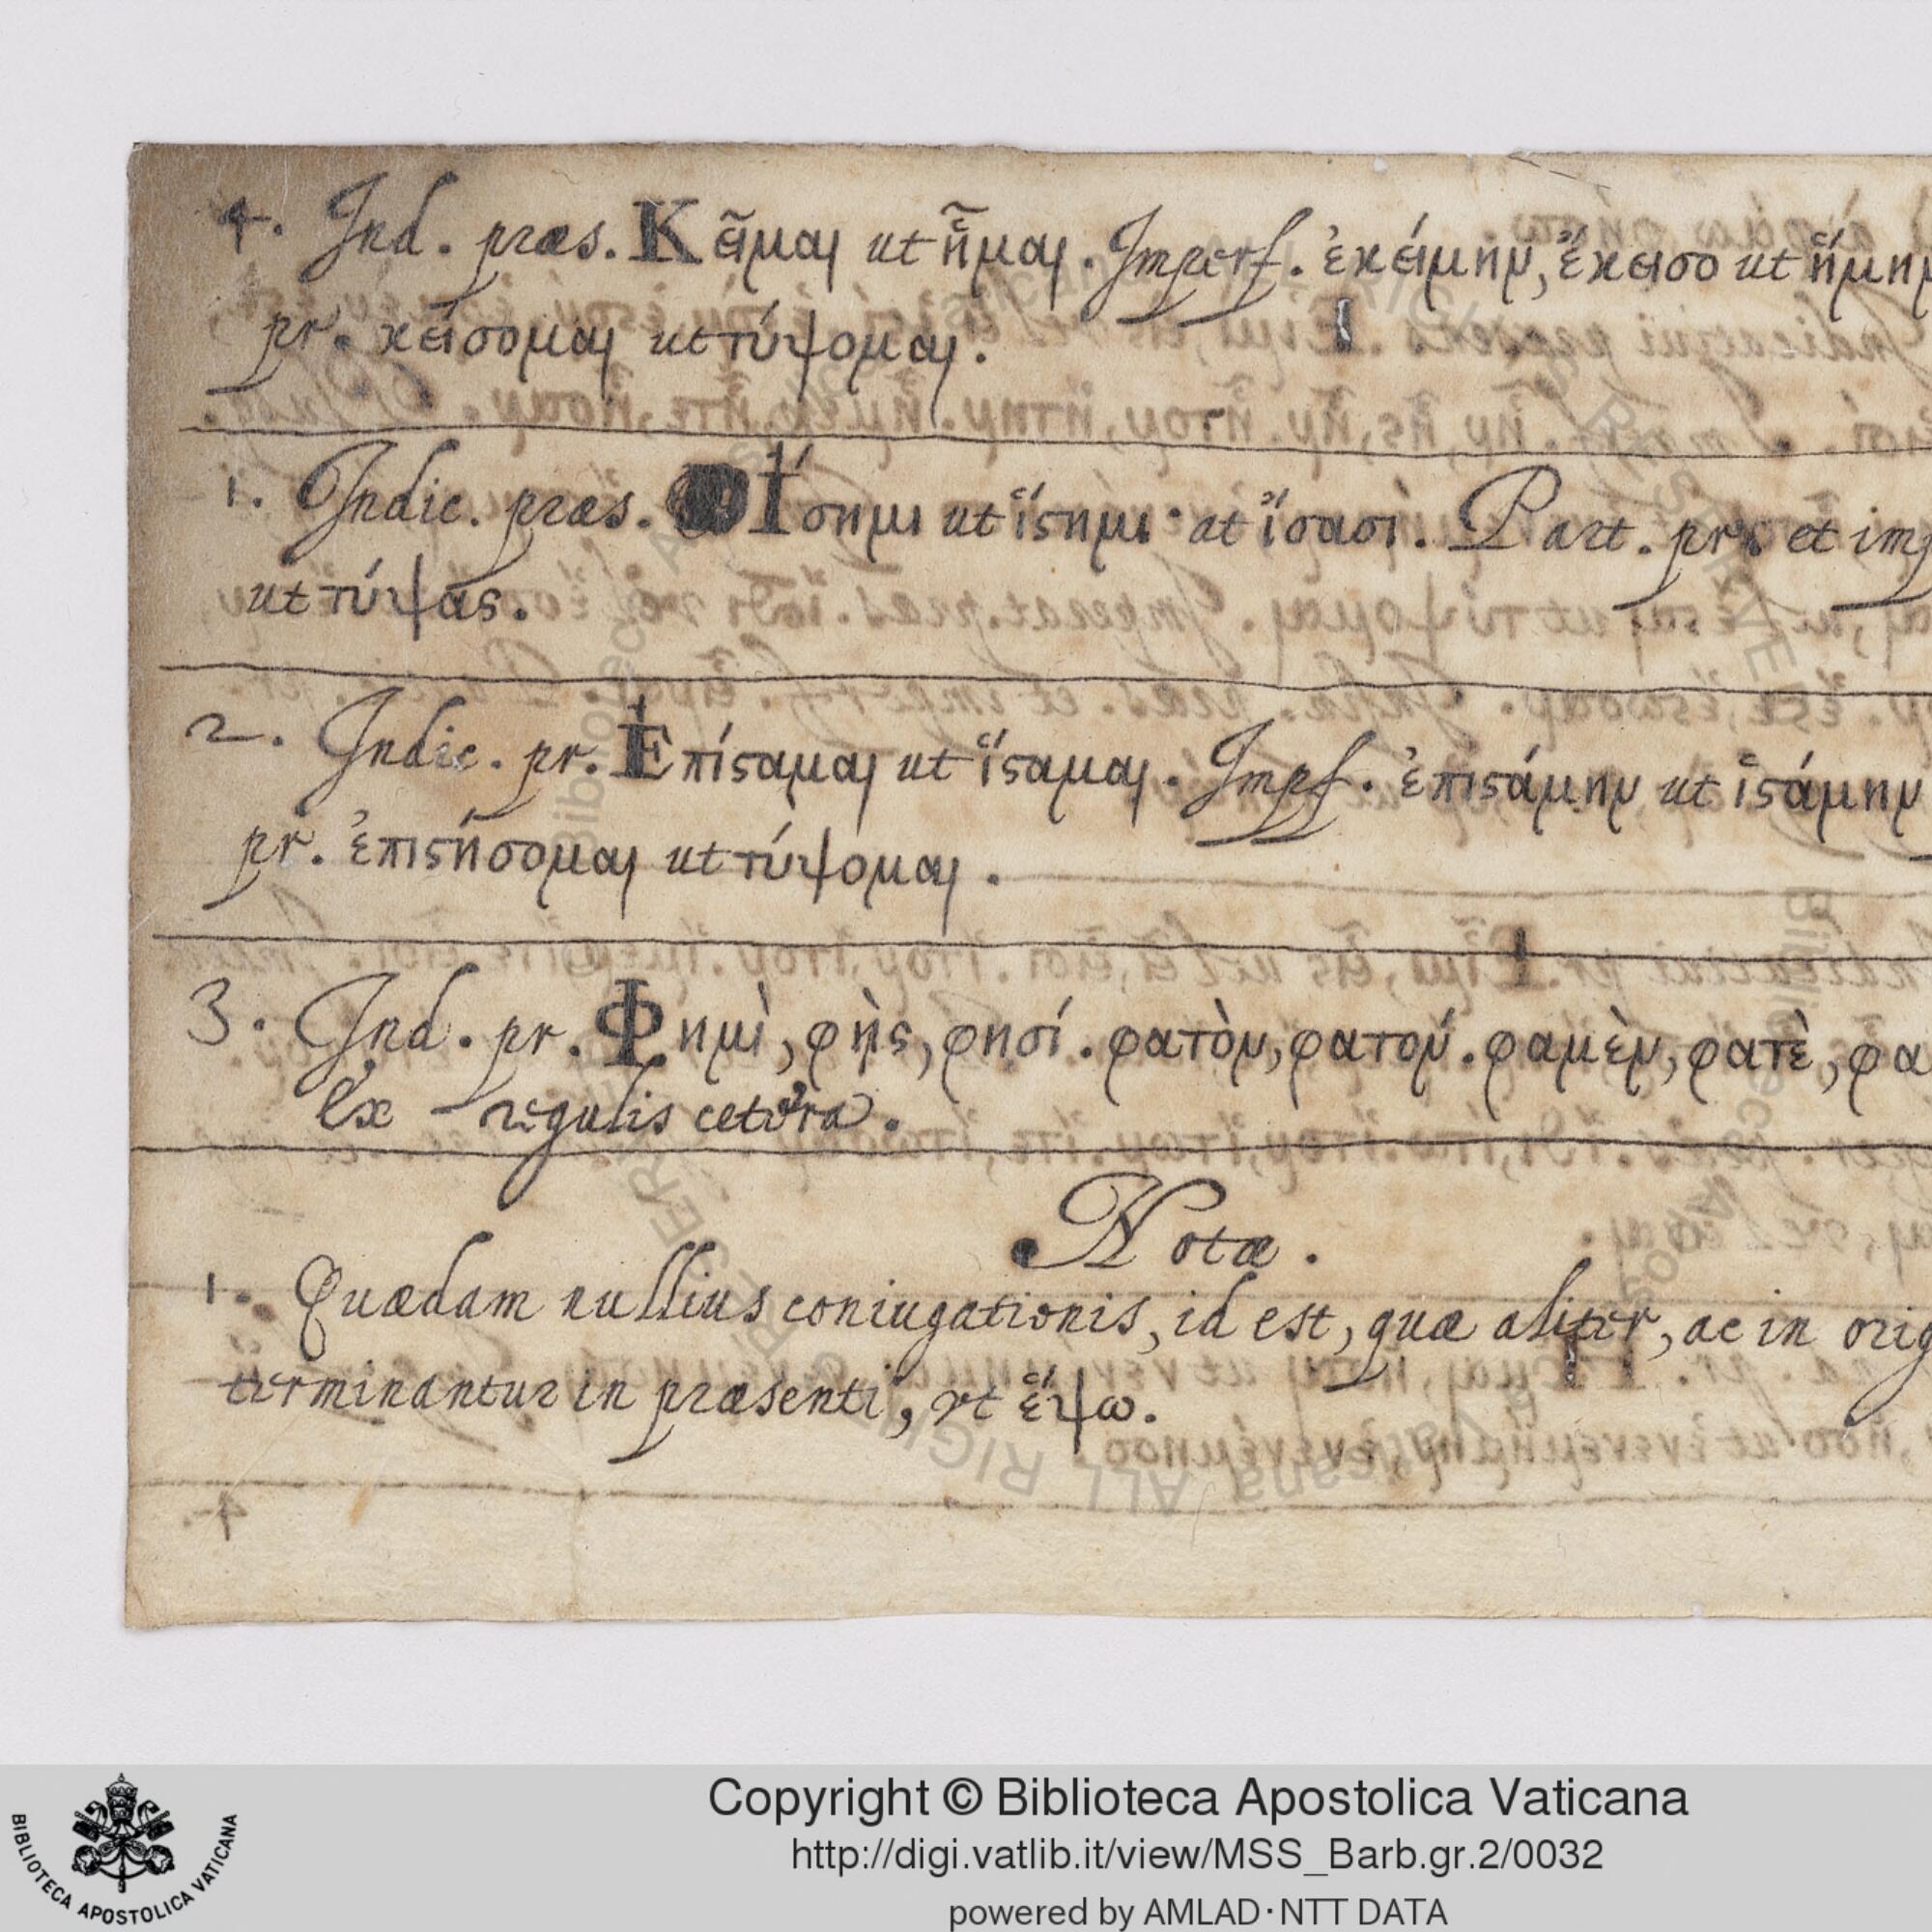 4. Ind. præs. Κεῖμαι ut ἧμαι. Imperf. ἐκείμην, ἔκεισο ut ἥμην
pr. κείσομαι ut τύψομαι.
1. Indic. præs. Ἴσημι ut ἵστημι· at ἴσασι. Part. pr. et imp
ut τύψας.
2. Indic. pr. Ἐπίσταμαι ut ἵσταμαι. Impf. ἐπιστάμην ut ἱστάμην
pr. ἐπιστήσομαι ut τύψομαι.
3. Ind. pr. Φημὶ, φὴς, φησί. φατὸν, φατόν. φαμὲν, φατὲ, φα
Ex regulis cetera.
Notæ.
1. Quædam nullius coniugationis, id est, quæ aliter, ac in orig
terminantur in præsenti, vt ἕψω.
Copyright © Biblioteca Apostolica Vaticana
http://digi.vatlib.it/view/MSS_Barb.gr.2/0032
powered by AMLAD·NTT DATA
BIBLIOTECA APOSTOLICA VATICANA